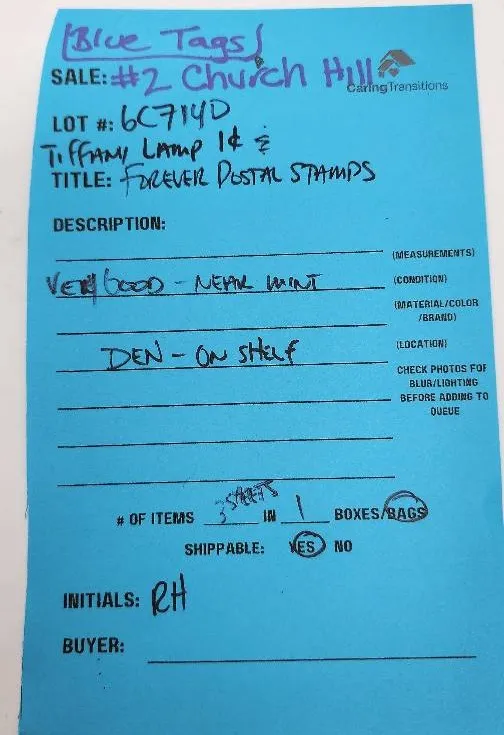 [Blue Tags]
SALE: #2 Church Hill
CaringTransitions
LOT #: 6C714D
TIFFANY LAMP 1¢ &
TITLE: FOREVER POSTAL STAMPS
DESCRIPTION:
(MEASUREMENTS)
VERY GOOD - NEAR MINT (CONDITION)
(MATERIAL/COLOR
/BRAND)
DEN - ON SHELF (LOCATION)
CHECK PHOTOS FOR
BLUR/LIGHTING
BEFORE ADDING TO
QUEUE
# OF ITEMS 3 SHEETS IN 1 BOXES/BAGS
SHIPPABLE: YES NO
INITIALS: RH
BUYER: